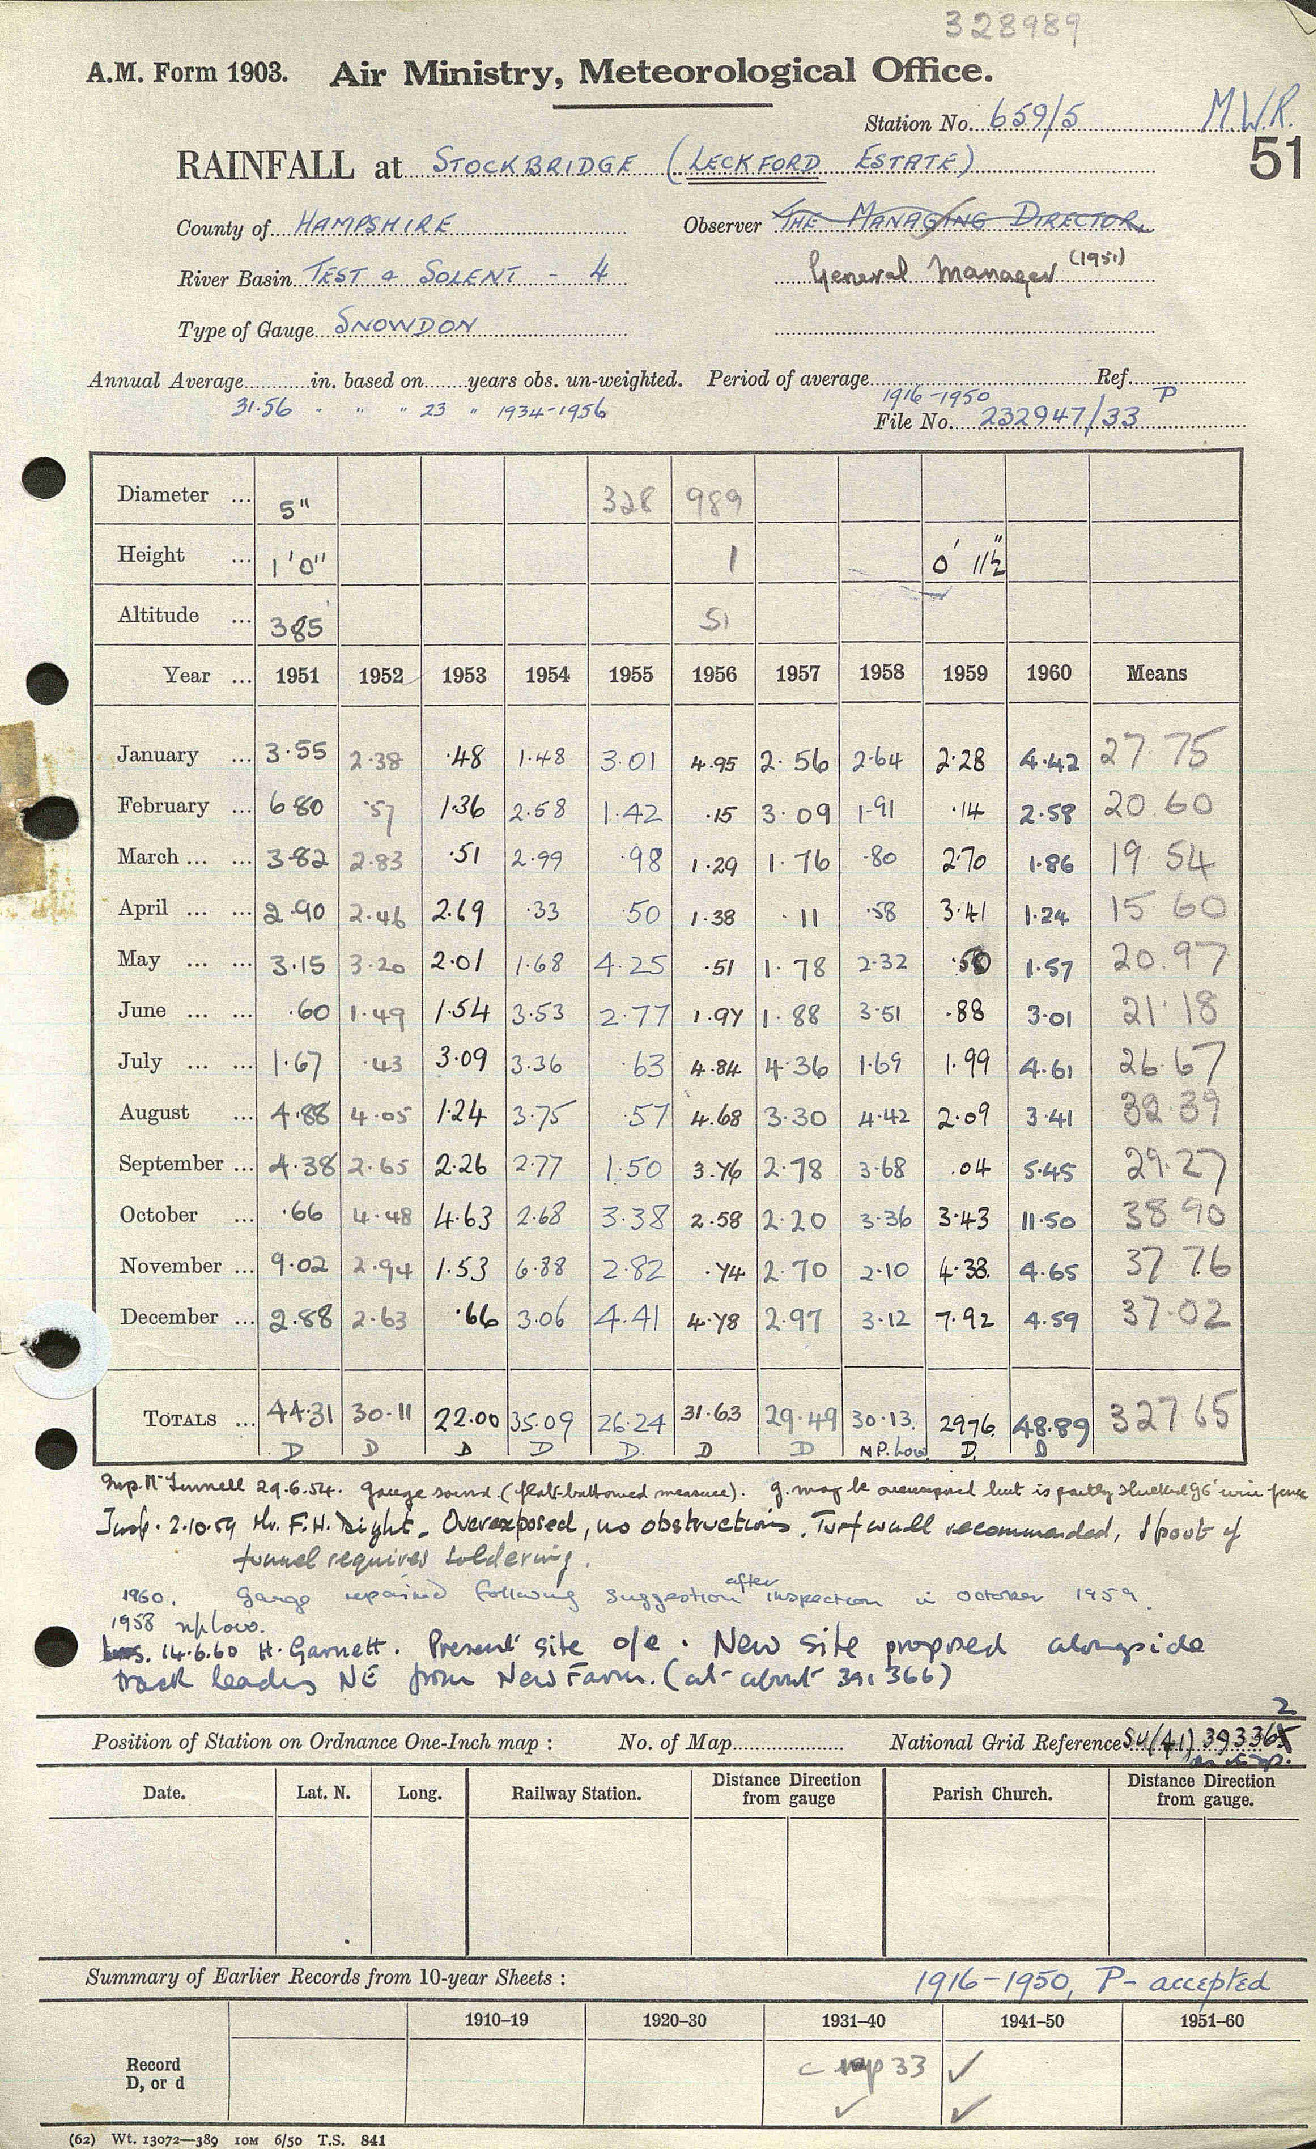 328989
A.M. Form 1903. Air Ministry, Meteorological Office.
Station No. 659/5 M.W.R.
51
RAINFALL at STOCKBRIDGE (LECKFORD ESTATE)
County of HAMPSHIRE Observer THE MANAGING DIRECTOR
River Basin TEST & SOLENT - 4 General Manager (1951)
Type of Gauge SNOWDON
Annual Average in. based on years obs. un-weighted. Period of average 1916-1950 Ref. P
31.56 " " " 23 " 1934-1956 File No. 232947/33
Diameter ... 5" 328 989
Height ... 1'0" 1 0' 11½"
Altitude ... 385 51
Year ... 1951 1952 1953 1954 1955 1956 1957 1958 1959 1960 Means
January ... 3.55 2.38 .48 1.48 3.01 4.95 2.56 2.64 2.28 4.42 27.75
February ... 6.80 .57 1.36 2.58 1.42 .15 3.09 1.91 .14 2.58 20.60
March ... ... 3.82 2.83 .51 2.99 .98 1.29 1.76 .80 2.70 1.86 19 54
April ... ... 2.90 2.46 2.69 .33 50 1.38 .11 .58 3.41 1.24 15 60
May ... ... 3.15 3.20 2.01 1.68 4.25 .51 1.78 2.32 .50 1.57 20.97
June ... ... .60 1.49 1.54 3.53 2.77 1.97 1.88 3.51 .88 3.01 21.18
July ... ... 1.67 .43 3.09 3.36 63 4.84 4.36 1.69 1.99 4.61 26.67
August ... 4.88 4.05 1.24 3.75 .57 4.68 3.30 4.42 2.09 3.41 32.39
September ... 4.38 2.65 2.26 2.77 1.50 3.76 2.78 3.68 .04 5.45 29.27
October ... .66 4.48 4.63 2.68 3.38 2.58 2.20 3.36 3.43 11.50 38 90
November ... 9.02 2.94 1.53 6.88 2.82 .74 2.70 2.10 4.33 4.65 37 76
December ... 2.88 2.63 .66 3.06 4.41 4.78 2.97 3.12 7.92 4.59 37.02
TOTALS ... 44.31 30.11 22.00 35.09 26.24 31.63 29.49 30.13 29.76 48.89 327 65
D D D D D. D D N.P. Low D. D
Insp. 29.6.54. Gauge sound (flat-bottomed measure). g. may be overexposed but is partly sheltered by 6' wire fence
Insp. 2.10.59 Mr. F.H. Dight. Overexposed, no obstructions. Turf wall recommended, spout of
funnel requires soldering.
1960. Gauge repaired following suggestion after inspection in October 1959.
1958 n/p low.
Ins. 14.6.60 H. Garnett. Present site o/e. New site proposed alongside
track leading NE from New Farm. (at about 391366)
2
Position of Station on Ordnance One-Inch map : No. of Map National Grid Reference SU(41) 393365
Date. Lat. N. Long. Railway Station. Distance Direction from gauge Parish Church. Distance Direction from gauge.
Summary of Earlier Records from 10-year Sheets : 1916-1950, P- accepted
1910–19 1920–30 1931–40 1941–50 1951–60
Record D, or d c 33 ✓
✓ ✓
(62) Wt. 13072—389 10M 6/50 T.S. 841